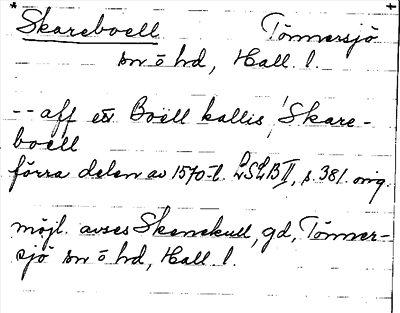 * Skareboell Tönnersjö +
sn o hd, Hall. l.
-- aff ett Boell kallis, Skare-
boell
förra delen av 1570-t. LSLB II, s. 381. orig.
möjl. avses Skenekull, gd, Tönner-
sjö sn o hd, Hall. l.